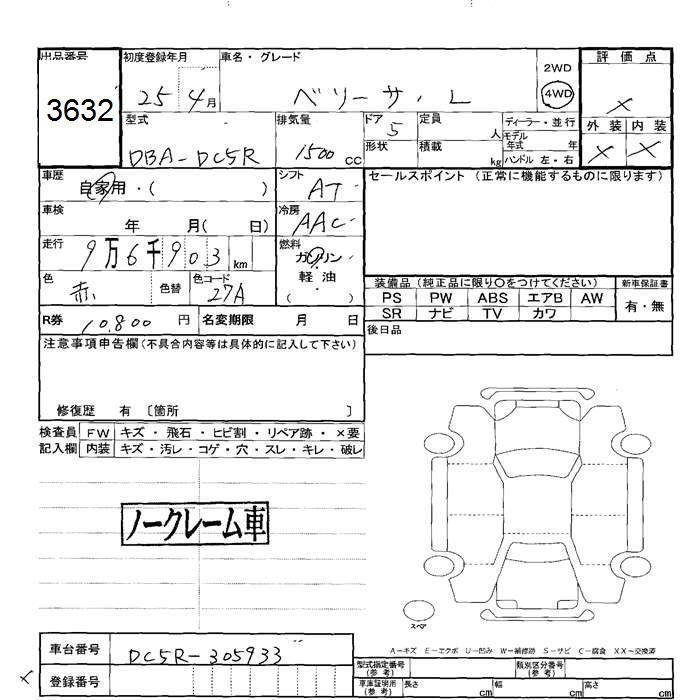 出品番号
3632
初度登録年月
25 4月
車名・グレード
ベリーサ・L
2WD
4WD
評価点
×
外装 内装
× ×
型式
DBA-DC5R
排気量
1500 cc
ドア 5
形状
定員 人
積載 kg
ディーラー・並行
モデル
年式 年
ハンドル 左・右
車歴
自家用・( )
シフト
AT
セールスポイント (正常に機能するものに限ります)
車検
年 月( 日)
冷房
AAC
走行
9万6千903 km
燃料
ガソリン
・
軽油
( )
色
赤
色替
色コード
27A
装備品 (純正品に限り〇をつけてください)
新車保証書
PS PW ABS エアB AW
有・無
SR ナビ TV カワ
R券 10,800 円
名変期限 月 日
後日品
注意事項申告欄(不具合内容等は具体的に記入して下さい)
修復歴 有 〔箇所 〕
検査員 FW キズ・飛石・ヒビ割・リペア跡・×要
記入欄 内装 キズ・汚レ・コゲ・穴・スレ・キレ・破レ
ノークレーム車
スペア
A-キズ E-エクボ U-凹み W-補修跡 S-サビ C-腐食 XX-交換済
車台番号 DC5R-305933
登録番号
×
型式指定番号
(参考)
類別区分番号
(参考)
車庫証明用
(参考)
長さ cm 幅 cm 高さ cm